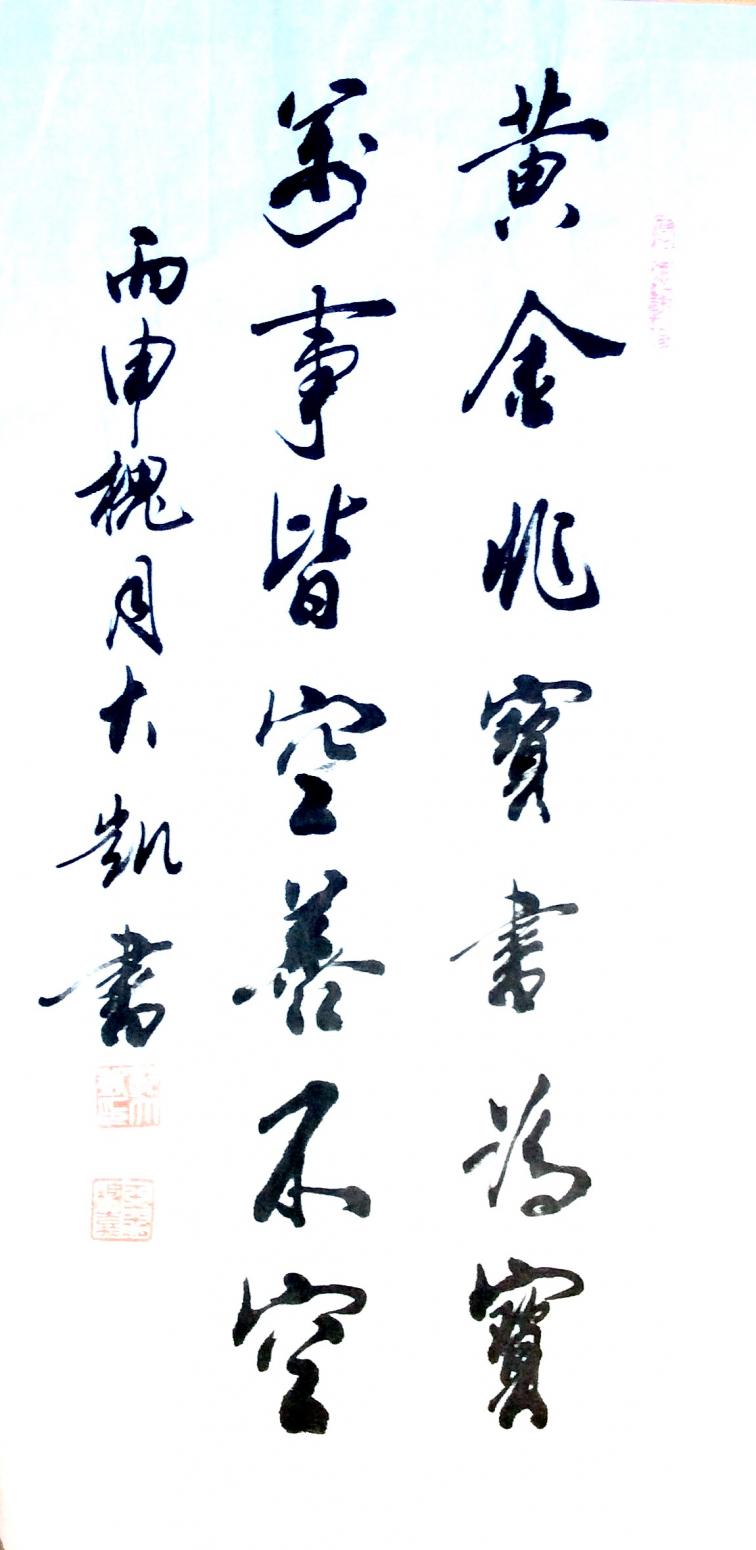 黄金非寶書為寶
萬事皆空善不空
丙申槐月大凱書